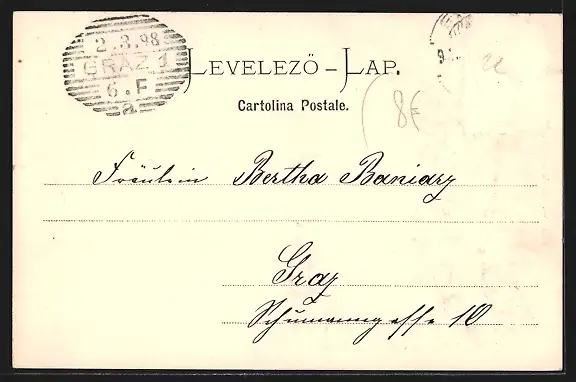 2.3.98
GRAZ 1
6.F
a
9.
LEVELEZŐ-LAP.
Cartolina Postale.
8€
Fräulein Bertha Baniary
Graz
Schumanngasse 10